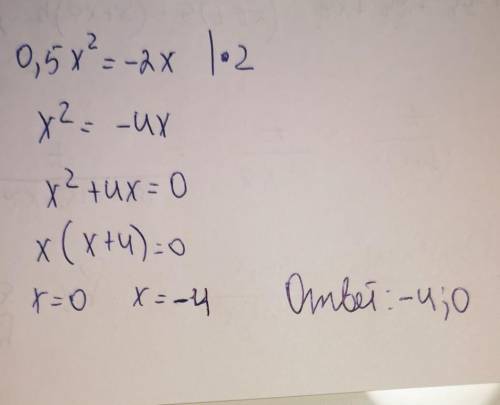 0,5x² = -2x |·2
x² = -4x
x² + 4x = 0
x(x+4) = 0
x = 0 x = -4 Ответ: -4; 0